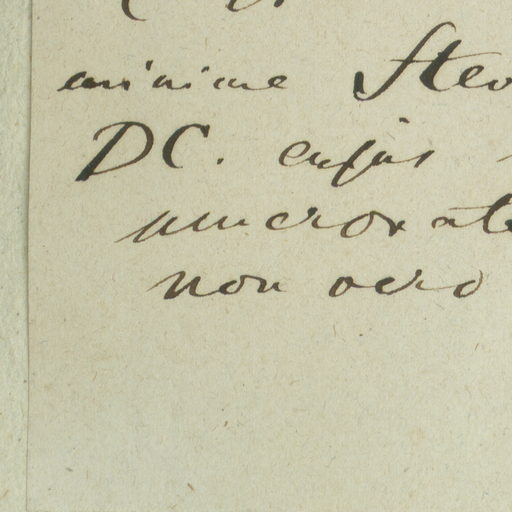 minime Stev
DC. cujus
mucronate
non vero